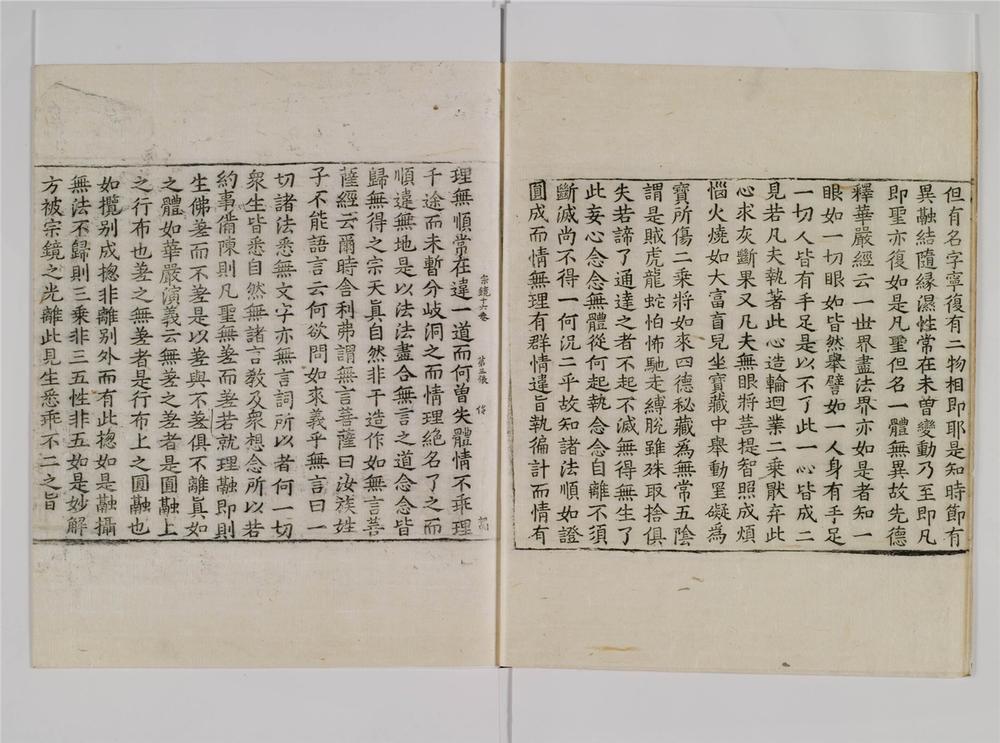 但有名字寧復有二物相即耶是知時節有
異融結隨緣濕性常在未曾變動乃至即凡
即聖亦復如是凡聖但名一體無異故先德
釋華嚴經云一世界盡法界亦如是者知一
眼如一切眼如皆然舉譬如一人身有手足
一切人皆有手足是以不了此一心皆成二
見若凡夫執著此心造輪迴業二乘猒弃此
心求灰斷果又凡夫無眼將菩提智照成煩
惱火燒如大富盲兒坐寶藏中舉動罣礙為
寶所傷二乘將如來四德秘藏為無常五陰
謂是賊虎龍蛇怕怖馳走縛脫雖殊取捨俱
失若諦了通達之者不起不滅無得無生了
此妄心念念無體從何起執念念自離不須
斷滅尚不得一何況二乎故知諸法順如證
圓成而情無理有群情違旨執徧計而情有
理無順常在違一道而何曾失體情不乖理
千途而未暫分岐洞之而情理絕名了之而
宗鏡十六卷 第五張
順違無地是以法法盡合無言之道念念皆
歸無得之宗天真自然非干造作如無言菩
薩經云爾時舍利弗謂無言菩薩曰汝族姓
子不能語言云何欲問如來義乎無言曰一
切諸法悉無文字亦無言詞所以者何一切
衆生皆悉自然無諸言教及衆想念所以若
約事俻陳則凡聖無差而差若就理融即則
生佛差而不差是以差與不差俱不離真如
之體如華嚴演義云無差之差者是圓融上
之行布也差之無差者是行布上之圓融也
如攬别成揔非離别外而有此揔如是融攝
無法不歸則三乘非三五性非五如是妙解
方被宗鏡之光離此見生悉乖不二之旨